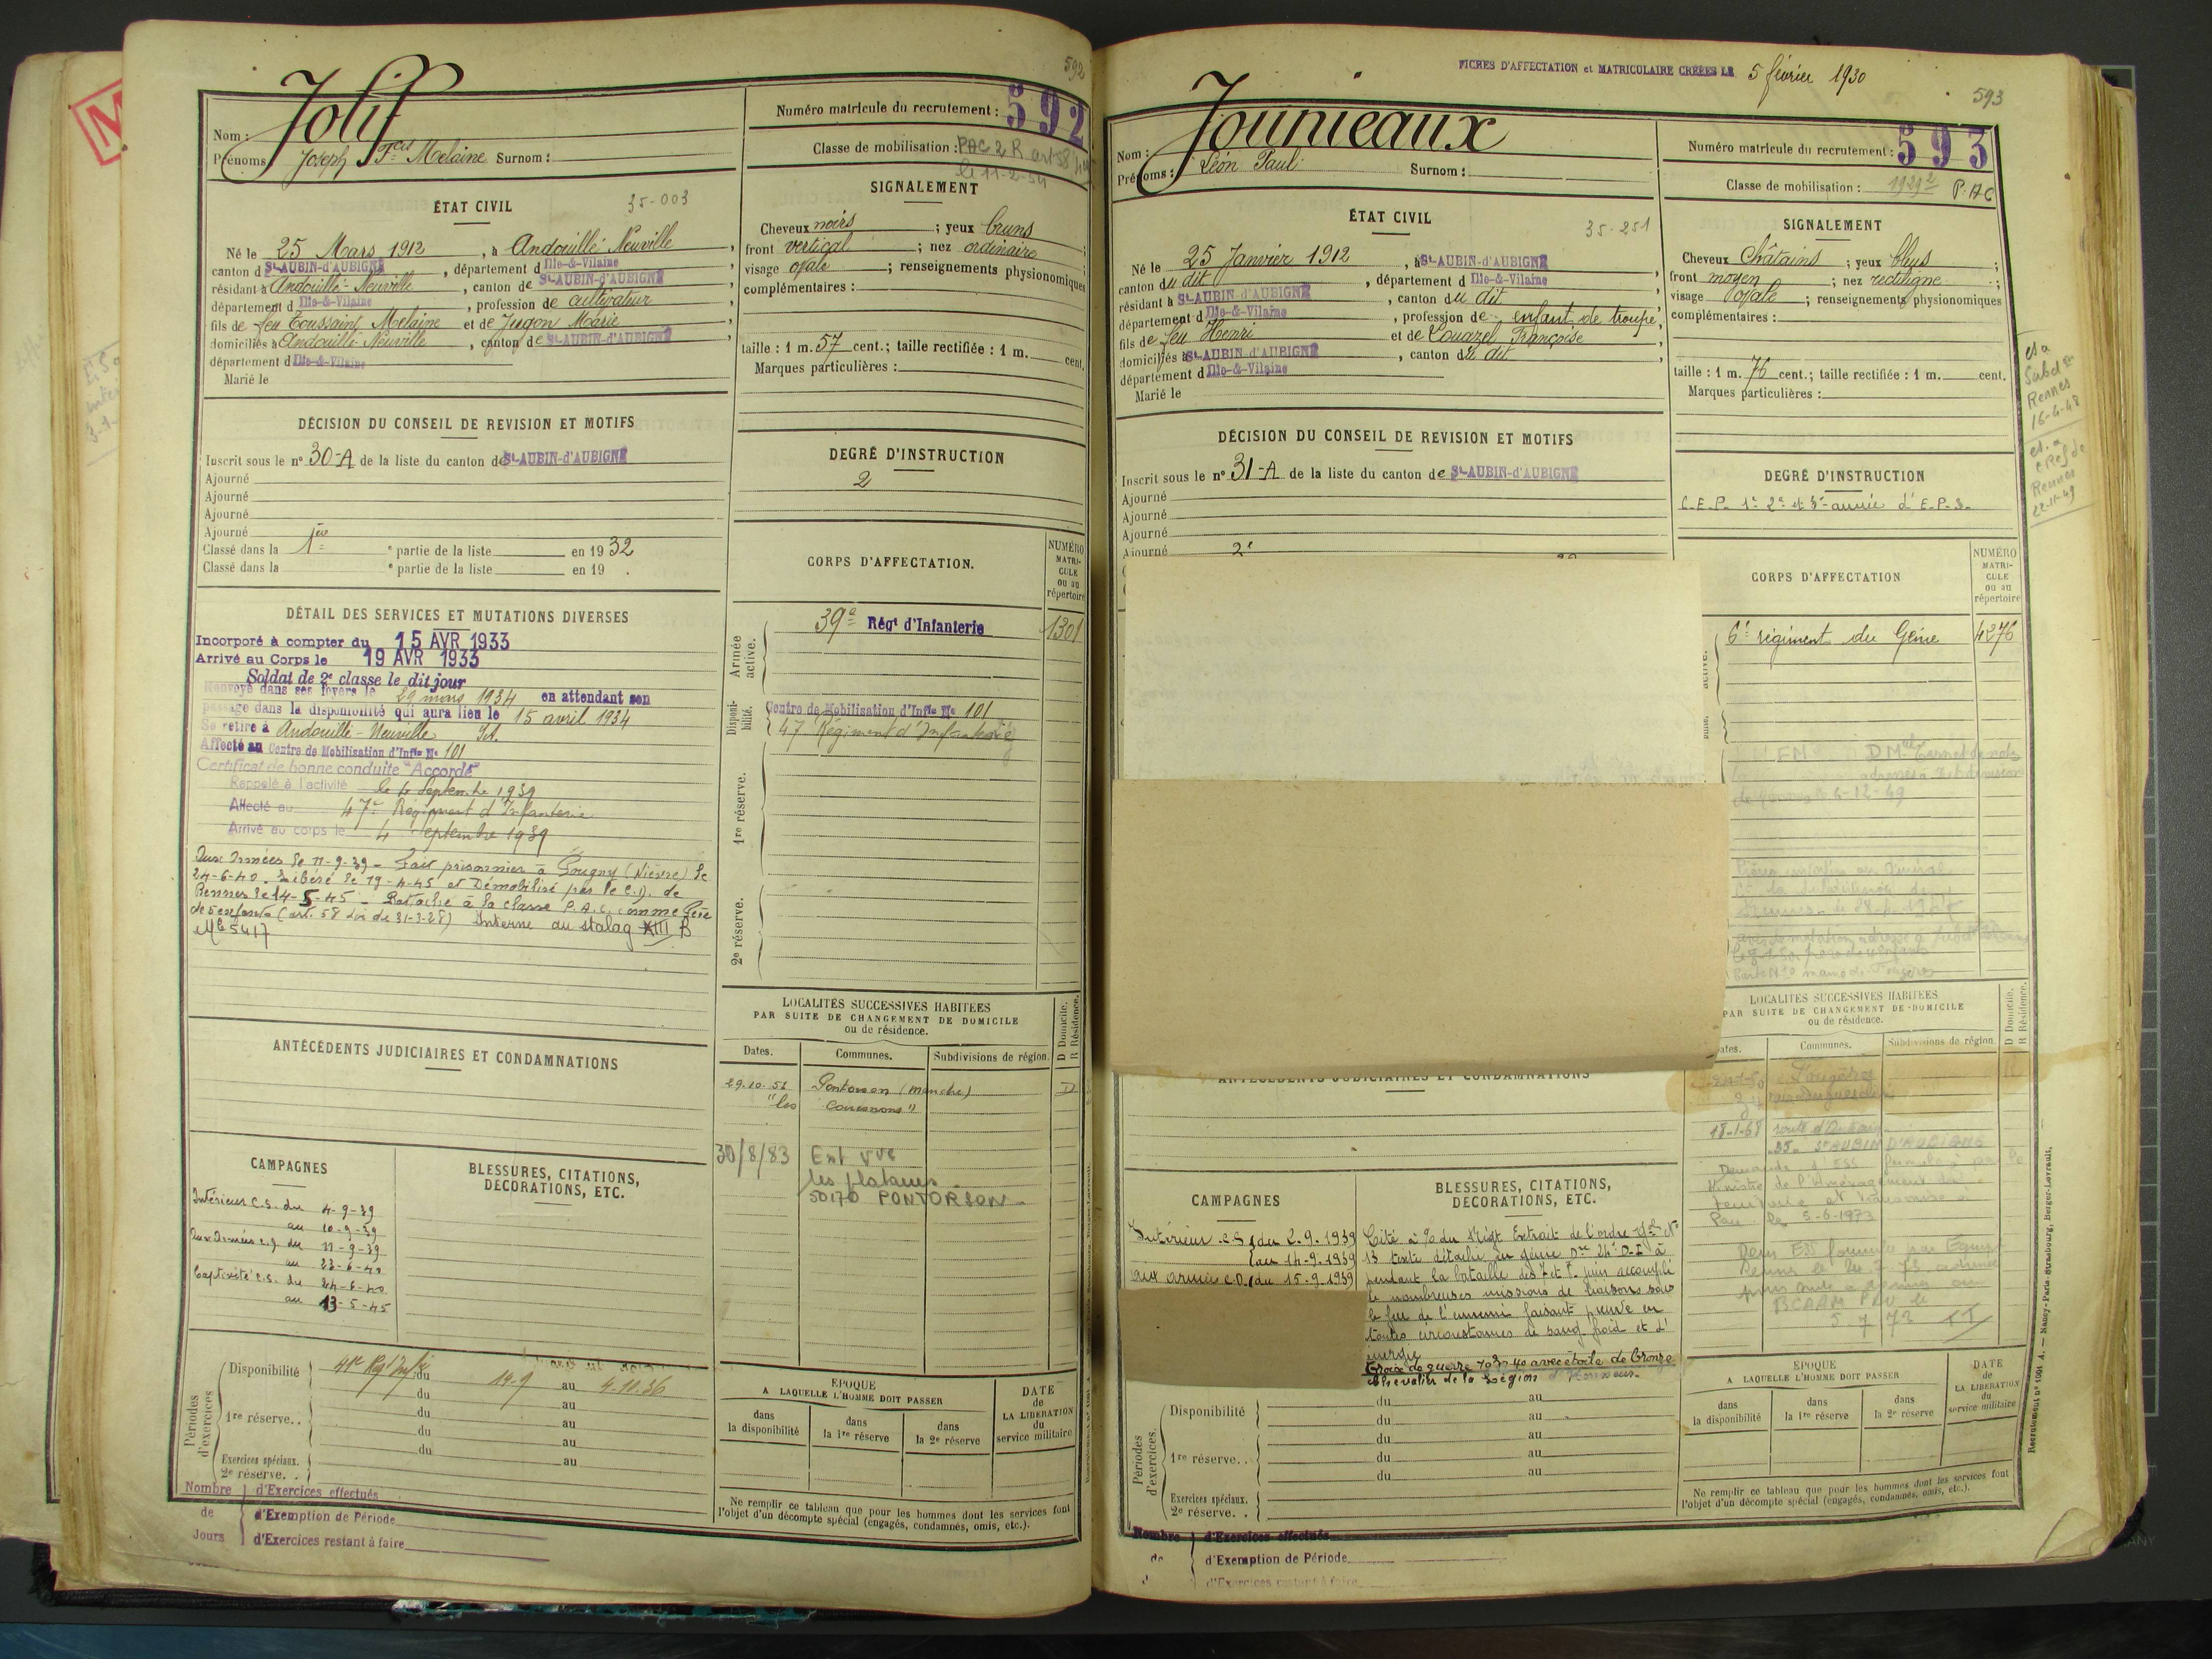 592
Jolif
Nom :
Prénoms : Joseph Fcis Melaine Surnom :
Numéro matricule du recrutement : 592
Classe de mobilisation : PAC 2 R art 58
le 11-2-54
ÉTAT CIVIL
35-003
Né le 25 Mars 1912, à Andouillé-Neuville,
canton d St-AUBIN-d'AUBIGNÉ, département d Ille-&-Vilaine
résidant à Andouillé-Neuville, canton de St-AUBIN-d'AUBIGNÉ
département d Ille-&-Vilaine, profession de cultivateur
fils de feu Toussaint Melaine et de Jugon Marie
domiciliés à Andouillé-Neuville, canton de St-AUBIN-d'AUBIGNÉ
département d Ille-&-Vilaine
Marié le
SIGNALEMENT
Cheveux noirs ; yeux bruns
front vertical ; nez ordinaire ;
visage ovale ; renseignements physionomiques
complémentaires :
taille : 1 m. 57 cent.; taille rectifiée : 1 m. cent.
Marques particulières :
DÉCISION DU CONSEIL DE REVISION ET MOTIFS
Inscrit sous le n° 30-A de la liste du canton de St-AUBIN-d'AUBIGNÉ
Ajourné
Ajourné
Ajourné
Ajourné
Classé dans la 1ère e partie de la liste en 1932
Classé dans la e partie de la liste en 19 .
DEGRÉ D'INSTRUCTION
2
DÉTAIL DES SERVICES ET MUTATIONS DIVERSES
Incorporé à compter du 15 AVR 1933
Arrivé au Corps le 19 AVR 1933
Soldat de 2e classe le dit jour
Renvoyé dans ses foyers le 29 mars 1934 en attendant son
passage dans la disponibilité qui aura lieu le 15 avril 1934
Se retire à Andouillé-Neuville
Affecté au Centre de Mobilisation d'Infie No 101
Certificat de bonne conduite "Accordé"
Rappelé à l'activité le 4 Septembre 1939
Affecté au 47e Régiment d'Infanterie
Arrivé au corps le 4 Septembre 1939
Aux Armées le 11-9-39 - Fait prisonnier à Pougny (Nièvre) le
24-6-40. Libéré le 19-4-45 et Démobilisé par le C.D. de
Rennes le 14-5-45 - Rataché à la classe P.A.C. comme Père
de 5 enfants (art. 58 Loi du 31-3-28) Interné au stalag XIII B
Mle 5417
CORPS D'AFFECTATION.
NUMÉRO MATRICULE ou au répertoire
Armée active.
39e Régt d'Infanterie 1301
Disponibilité.
Centre de Mobilisation d'Infie No 101
47 Régiment d'Infanterie
1re réserve.
2e réserve.
ANTÉCÉDENTS JUDICIAIRES ET CONDAMNATIONS
LOCALITÉS SUCCESSIVES HABITÉES
PAR SUITE DE CHANGEMENT DE DOMICILE
ou de résidence.
D Domicile.
R Résidence.
Dates. Communes. Subdivisions de région.
29.10.51 Pontorson (Manche) D
"les Couesnons"
30/8/83
les platanes
50170 PONTORSON
CAMPAGNES
Intérieur C.S. du 4-9-39
au 10-9-39
Aux Armées C.S. du 11-9-39
au 23-6-40
Captivité C.S. du 24-6-40
au 13-5-45
BLESSURES, CITATIONS,
DÉCORATIONS, ETC.
Périodes d'exercices
Disponibilité 41e Régt Infie du 14-9 au 4-10-36
du au
1re réserve.. du au
du au
du au
Exercices spéciaux.
2e réserve. .
ÉPOQUE
A LAQUELLE L'HOMME DOIT PASSER
dans la disponibilité
dans la 1re réserve
dans la 2e réserve
DATE de LA LIBÉRATION du service militaire
Ne remplir ce tableau que pour les hommes dont les services font
l'objet d'un décompte spécial (engagés, condamnés, omis, etc.).
Nombre de Jours
d'Exercices effectués
d'Exemption de Période
d'Exercices restant à faire
FICHES D'AFFECTATION et MATRICULAIRE CRÉÉES LE 5 février 1930
593
Jounieaux
Nom :
Prénoms : Léon Paul Surnom :
Numéro matricule du recrutement : 593
Classe de mobilisation : 1929 2 P.AC
ÉTAT CIVIL
35-251
Né le 25 Janvier 1912, à St-AUBIN-d'AUBIGNÉ
canton du dit, département d Ille-&-Vilaine
résidant à St-AUBIN-d'AUBIGNÉ, canton du dit
département d Ille-&-Vilaine, profession de enfant de troupe,
fils de feu Henri et de Louazel Françoise
domiciliés à St-AUBIN-d'AUBIGNÉ, canton du dit
département d Ille-&-Vilaine
Marié le
SIGNALEMENT
Cheveux Châtains ; yeux bleus ;
front moyen ; nez rectiligne ;
visage ovale ; renseignements physionomiques
complémentaires :
taille : 1 m. 76 cent.; taille rectifiée : 1 m. cent.
Marques particulières :
Subd
Rennes
16-6-48
Rennes
22-11-49
DÉCISION DU CONSEIL DE REVISION ET MOTIFS
Inscrit sous le n° 31-A de la liste du canton de St-AUBIN-d'AUBIGNÉ
Ajourné
Ajourné
Ajourné
Ajourné
2e
DEGRÉ D'INSTRUCTION
C.E.P. 1e 2e et 3e année d'E.P.S.
CORPS D'AFFECTATION
NUMÉRO MATRICULE ou au répertoire
6e régiment du Génie 4276
6-12-49
LOCALITÉS SUCCESSIVES HABITÉES
PAR SUITE DE CHANGEMENT DE DOMICILE
ou de résidence.
D Domicile.
R Résidence.
Dates. Communes. Subdivisions de région
Fougères
18-1-68
35 St AUBIN D'AUBIGNÉ
Ministre de l'Aménagement du
Pau le 5-6-1973
ANTÉCÉDENTS JUDICIAIRES ET CONDAMNATIONS
CAMPAGNES
Intérieur C.S. du 2.9.1939
au 14-9-1939
aux armées C.D. du 15-9-1939
BLESSURES, CITATIONS,
DÉCORATIONS, ETC.
Cité à l'o du Régt Extrait de l'ordre No
13 détaché du génie à
pendant la bataille des 7 et 8 juin accompli
de nombreuses missions de liaisons sous
le feu de l'ennemi faisant preuve en
toutes circonstances de sang froid et d'
énergie
Croix de guerre 1939-40 avec étoile de bronze
Chevalier de la Légion d'Honneur.
Périodes d'exercices.
Disponibilité du au
du au
du au
1re réserve.. du au
du au
Exercices spéciaux.
2e réserve. .
ÉPOQUE
A LAQUELLE L'HOMME DOIT PASSER
dans la disponibilité
dans la 1re réserve
dans la 2e réserve
DATE de LA LIBÉRATION du service militaire
Ne remplir ce tableau que pour les hommes dont les services font
l'objet d'un décompte spécial (engagés, condamnés, omis, etc.).
Nombre de
d'Exercices effectués
d'Exemption de Période
d'Exercices restant à faire
Recrutement n° 1001 A. — Nancy-Paris-Strasbourg, Berger-Levrault.